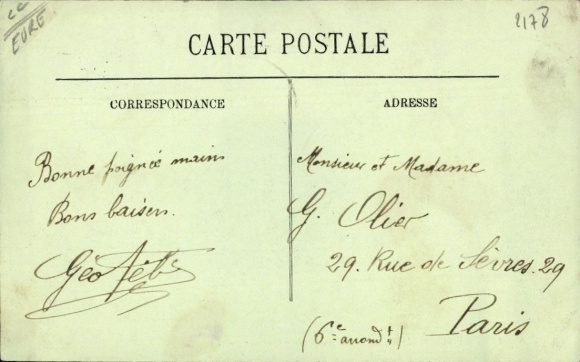 EURE
2178
CARTE POSTALE
CORRESPONDANCE
ADRESSE
Bonne poignée mains
Bons baisers.
Géo
Monsieur et Madame
G. Olier
29. Rue de Sèvres. 29
Paris
(6e arrondt)